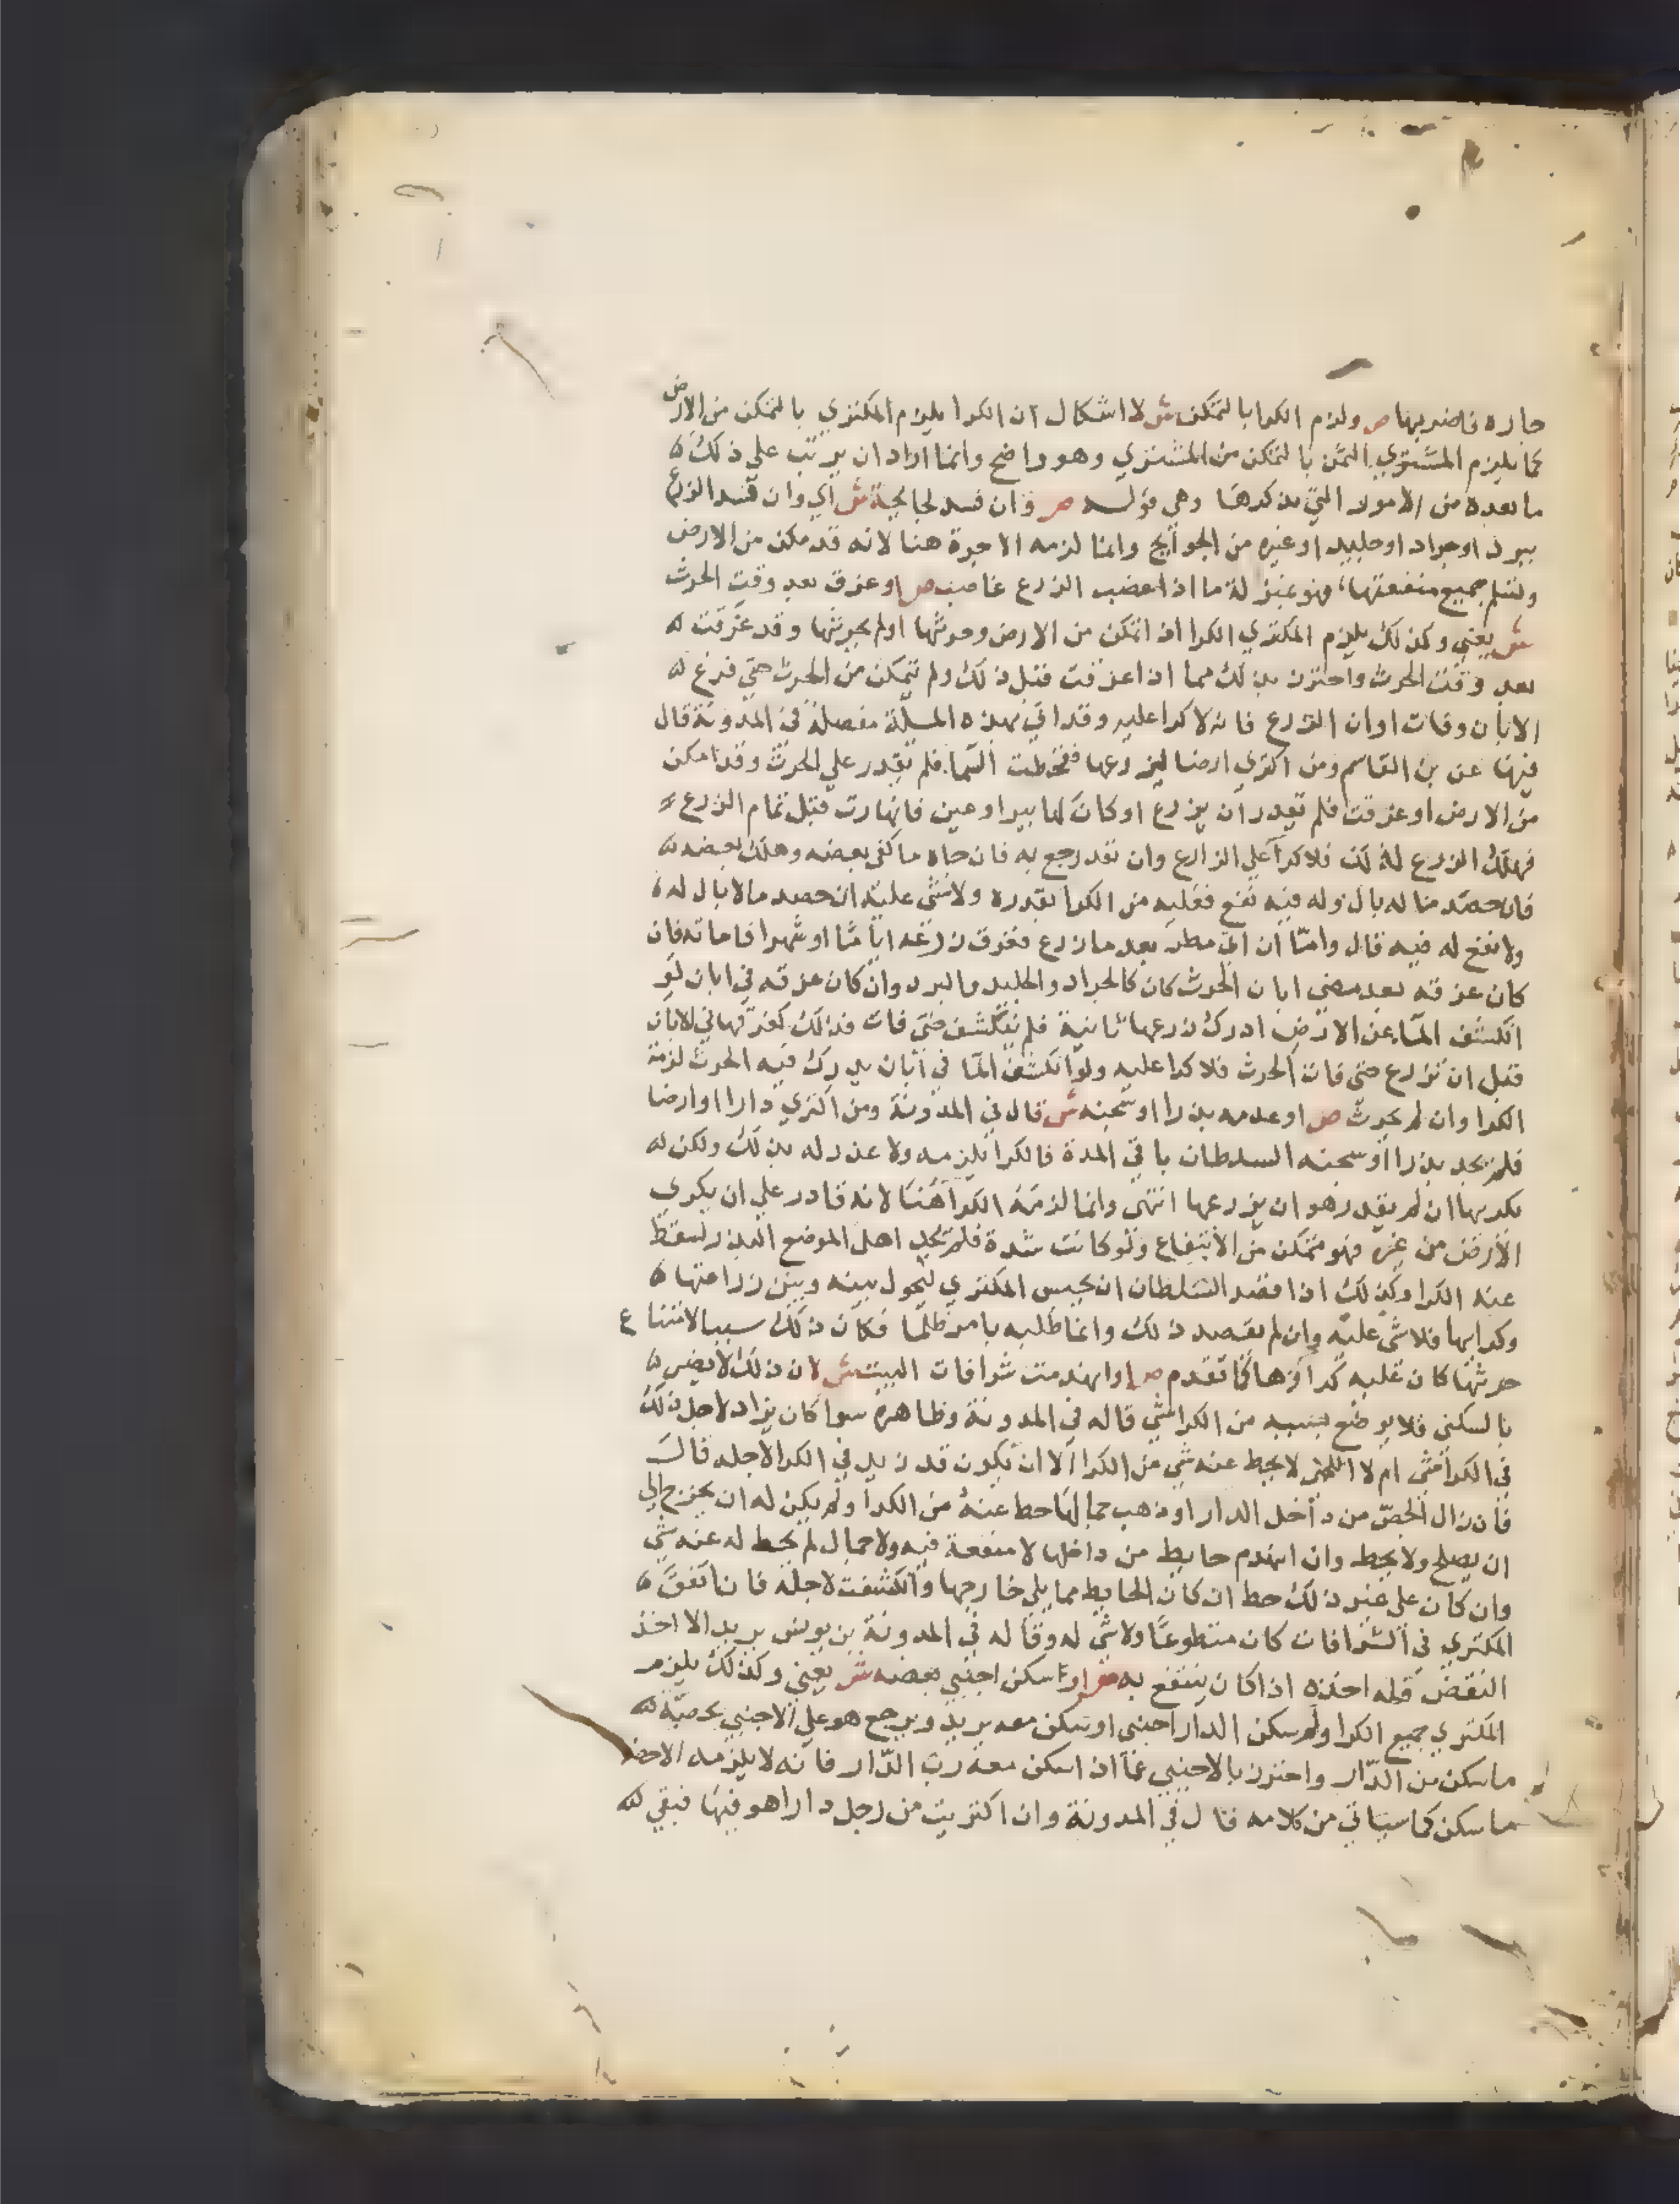 جاره فاضر بها ص ولزم الكرا بالتمكن ش لا اشكال ان الكرا يلزم المكتري بالتمكن من الارض
كما يلزم المشتري الثمن بالتمكن من المشتري وهو واضح وانما اراد ان يرتب علي ذلك
ما بعده من الامور التي يذكرها وهي قوله ص وان فسد لجايحة ش اي وان فسد الزرع
ببرد او جراد او جليد او غيره من الجوايح وانما لزمه الاجرة هنا لانه قد مكن من الارض
وتسلم جميع منفعتها فهو بمنزلة ما اذا غصب الزرع غاصب ص او غرق بعد وقت الحرث
ش يعني وكذلك يلزم المكتري الكرا اذا تمكن من الارض وحرثها او لم يحرثها وقد غرقت
بعد وقت الحرث واحترز بذلك مما اذا غرقت قبل ذلك ولم يتمكن من الحرث حتي فرغ
الابان وفات اوان الزرع فانه لا كرا عليه وقد اتي بهذه المسلة مفصلة في المدونة قال
فيها عن بن القاسم ومن اكتري ارضا ليزرعها فقحطت السما فلم يقدر علي الحرث وقد امكن
من الارض او غرقت فلم تقدر ان يزرع او كان لها بير او عين فانهارت قبل تمام الزرع
فهلك الزرع لذلك فلا كرا علي الزارع وان نقد رجع به فان جاه ما كفي بعضه وهلك بعضه
فان حصد منا له بال وله فيه نفع فعليه من الكرا بقدره ولا شي عليه ان حصد ما لا بال له
ولا نفع له فيه قال وامّا ان اتي مطر بعد ما زرع فغرق زرعه اياما او شهرا فاماته فان
كان غرقه بعد مضي ابان الحرث كان كالجراد والجليد والبرد وان كان غرقه في ابان لو
انكشف الما عن الارض ادرك زرعها ثانية فلم ينكشف حتي فات فذلك كغرقها في الابان
قبل ان تزرع حتي فات الحرث فلا كرا عليه ولو انكشف الما في ابان يدرك فيه الحرث لزمه
الكرا وان لم يحرث ص او عدمه بذرا او سجنه ش قال في المدونة ومن اكتري دارا او ارضا
فلم يجد بذرا او سجنه السلطان باقي المدة فالكرا يلزمه ولا عذر له بذلك ولكن
يكريها ان لم يقدر هو ان يزرعها انتهي وانما لزمه الكرا هنا لانه قادر علي ان يكري
الارض من غيره فهو متمكن من الانتفاع ولو كانت شدة فلم يجد اهل الموضع البذر لسقط
عنه الكرا وكذلك اذا قصد السلطان ان يحبس المكتري ليحول بينه وبين زراعتها
وكرايها فلا شي عليه وان لم يقصد ذلك وانما طلبه بامر ظلما فكان ذلك سببا لامتناع
حرثها كان عليه كراؤها كما تقدم ص او انهدمت شرافات البيت ش لان ذلك لا يضر
بالسكني فلا يوضع بسببه من الكرا شي قاله في المدونة وظاهره سوا كان يزاد لاجل ذلك
في الكرا شي ام لا اللخمي لا يحط عنه شي من الكرا الا ان يكون قد زيد في الكرا لاجله قال
فان زال الجص من داخل الدار او ذهب جمالها حط عنه من الكرا ولم يكن له ان يخرج الي
ان يصلح ولا يحط وان انهدم حايط من داخلها لا منفعة فيه ولا جمال لم يحط له عنه شي
وان كان علي غير ذلك حط ان كان الحايط مما يلي خارجها وانكشفت لاجله فان انفق
المكتري في الشرافات كان متطوعا ولا شي له وقاله في المدونة بن يونس يريد الا اخذ
النقض فله اخذه اذا كان ينتفع به ص او سكن اجنبي بعضه ش يعني وكذلك يلزم
المكتري جميع الكرا ولو سكن الدار اجنبي او سكن معه يريد ويرجع هو علي الاجنبي بحصة
ما سكن من الدار واحترز بالاجنبي عما اذا سكن معه رب الدار فانه لا يلزمه الا حصة
ما سكن كما سياتي من كلامه قال في المدونة وان اكتريت من رجل دارا هو فيها فبقي